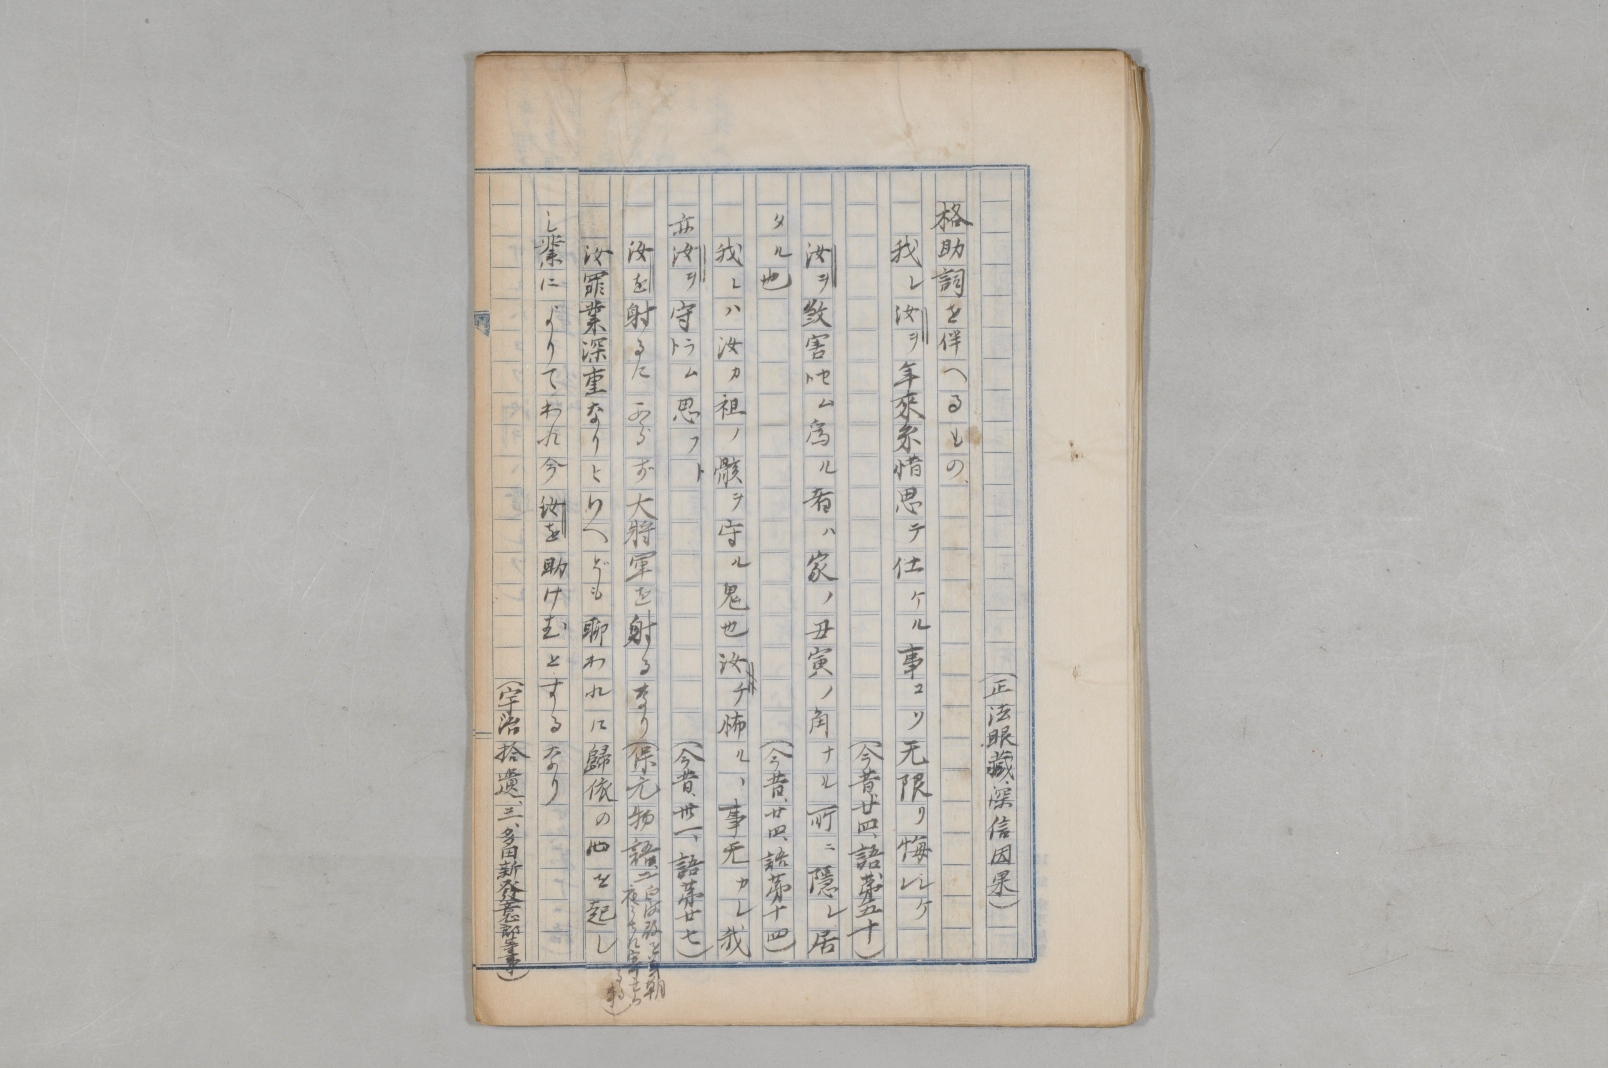 (正法眼藏、深信因果)
格助詞を伴へるもの、
我レ汝ヲ年來糸惜思テ仕ケル事コソ无限リ悔シケ
(今昔廿四、語第五十)
汝ヲ殺害セムト為ル者ハ家ノ丑寅ノ角ナル所ニ隠レ居
タル也
(今昔、廿四、語第十四)
我レハ汝カ祖ノ骸ヲ守ル鬼也汝チ怖ルヽ事无カレ我
亦汝ヲ守ラムト思フト
(今昔、卅一、語第廿七)
汝を射るにあらず大将軍を射るなり(保元物語、二 白河殿
汝罪業深重なりといへども聊われに歸依の心を起し
し業によりてわれ今汝を助けむとするなり
(宇治拾遺、三、多田新發意郎等事)